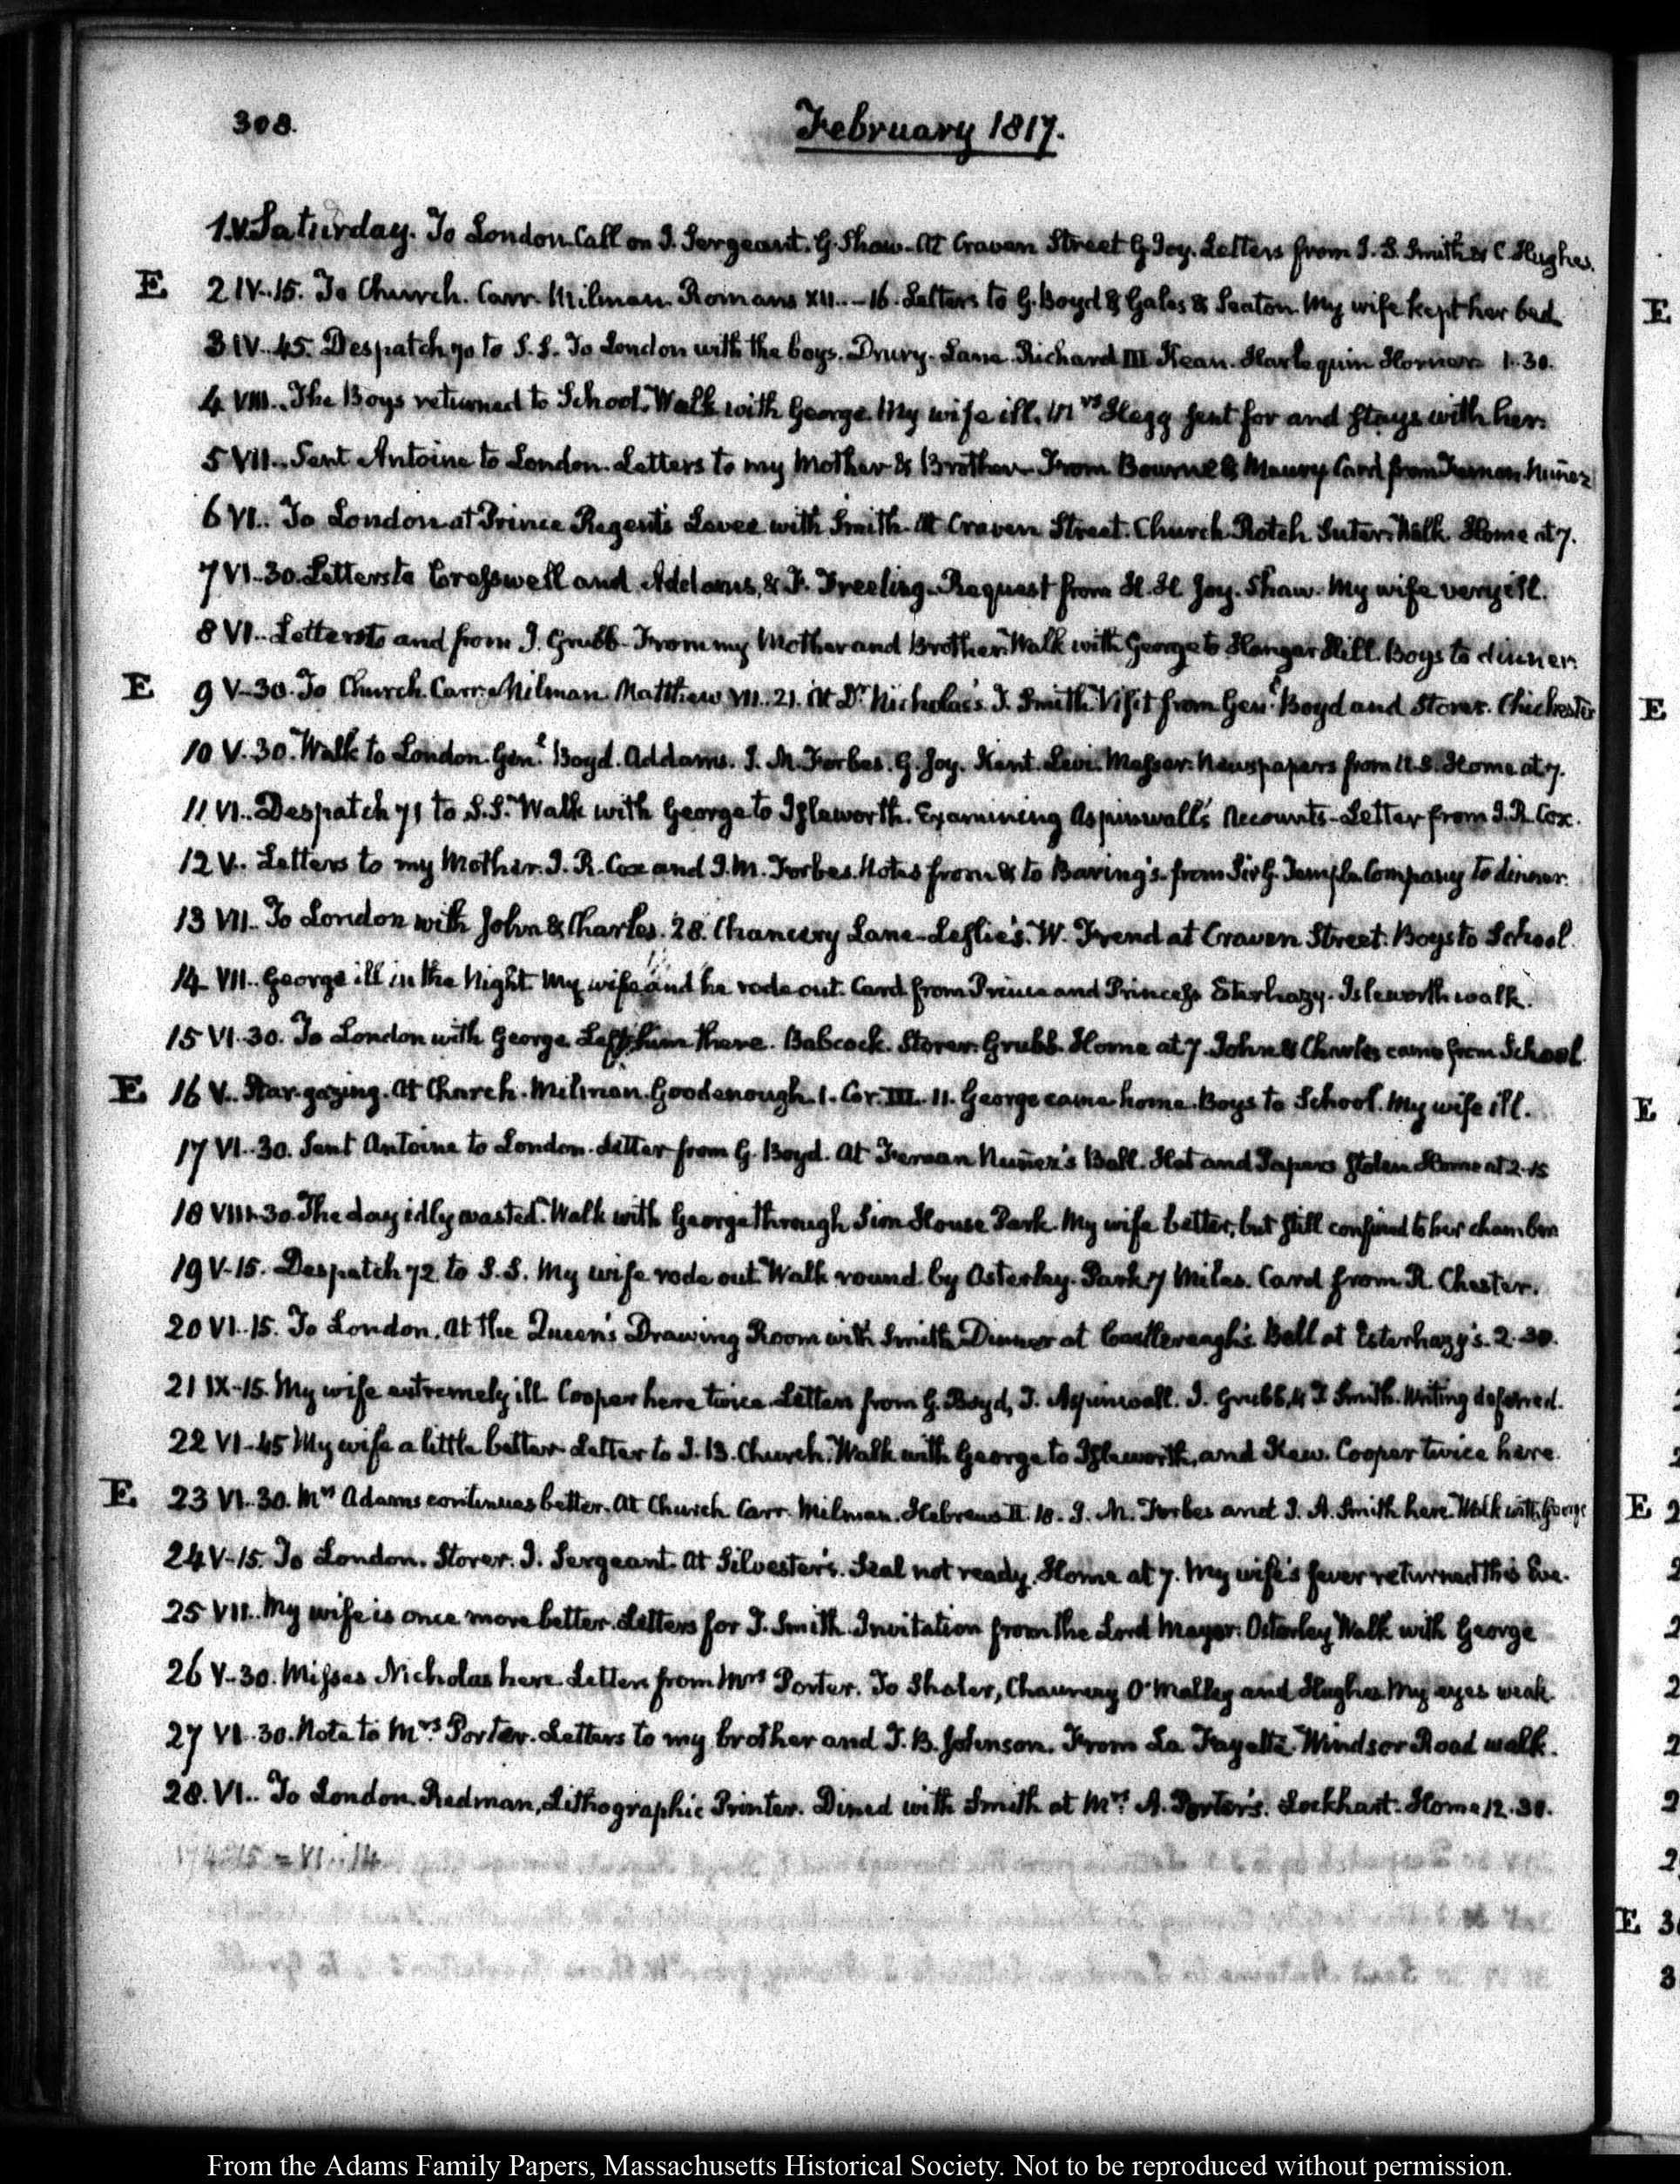 308.
February 1817.
1. V. Saturday. To London. Call on J. Sergeant. G. Shaw. At Craven Street G. Joy. Letters from J. S. Smith & C. Hughes.
E 2 IV..15. To Church. Carr. Milman. Romans XII..-16. Letters to G. Boyd & Gales & Seaton. My wife kept her bed
3 IV..45. Despatch 70 to S.S. To London with the boys. Drury-Lane. Richard III Kean. Harlequin Horner 1..30.
4 VIII.. The Boys returned to School. Walk with George. My wife ill. Mrs Hegg sent for and stays with her.
5 VII.. Sent Antoine to London. Letters to my Mother & Brother. From Bourne & Maury Card from Fernan Nuñez
6 VI.. To London at Prince Regent's Levee with Smith. At Craven Street. Church Rotch Suter. Walk. Home at 7.
7 VI..30. Letters to Cresswell and Addams, & F. Freeling. Request from H. H. Joy. Shaw. My wife very ill.
8 VI.. Letters to and from J. Grubb. From my Mother and Brother. Walk with George to Hanger Hill. Boys to dinner.
E 9 V..30. To Church. Carr. Milman. Matthew VII..21. At Dr Nicholas's. J. Smith. Visit from Genl Boyd and Storer. Chichester
10 V..30. Walk to London. Genl Boyd. Addams. J. M. Forbes. G. Joy. Kent. Levi. Messer. Newspapers from U.S. Home at 7.
11 VI.. Despatch 71 to S.S. Walk with George to Isleworth. Examining Aspinwall's Accounts. Letter from J. R. Cox.
12 V.. Letters to my Mother. J. R. Cox and J. M. Forbes. Notes from & to Baring's. from Sir G. Temple. Company to dinner.
13 VII.. To London with John & Charles. 28. Chancery Lane. Leslie's. W. Frend at Craven Street. Boys to School.
14 VII.. George ill in the Night. My wife and he rode out. Card from Prince and Princess Esterhazy. Isleworth walk.
15 VI..30. To London with George. Left him there. Babcock. Storer. Grubb. Home at 7. John & Charles came from School
E 16 V.. Star-gazing. At Church. Milman. Goodenough. 1. Cor. III. 11. George came home. Boys to School. My wife ill.
17 VI..30. Sent Antoine to London. Letter from G. Boyd. At Fernan Nuñez's Ball. Hat and Papers stolen Home at 2..15
18 VIII..30. The day idly wasted. Walk with George through Sion House Park. My wife better, but still confined to her chamber
19 V..15. Despatch 72 to S.S. My wife rode out. Walk round by Osterley-Park 7 Miles. Card from R. Chester.
20 VI..15. To London. At the Queen's Drawing Room with Smith. Dinner at Castlereagh's. Ball at Esterhazy's. 2..30.
21 IX..15. My wife extremely ill. Cooper here twice. Letters from G. Boyd, T. Aspinwall. J. Grubb, & J. Smith. Writing deferred.
22 VI..45 My wife a little better. Letter to J. B. Church. Walk with George to Isleworth, and Kew. Cooper twice here.
E 23 VI..30. Mrs Adams continues better. At Church Carr. Milman. Hebrews II. 18. J. M. Forbes and J. A. Smith here. Walk with George
24 V..15. To London. Storer. J. Sergeant. At Silvester's. Seal not ready. Home at 7. My wife's fever returned this Eve.
25 VII.. My wife is once more better. Letters for J. Smith. Invitation from the Lord Mayor. Osterley Walk with George
26 V..30. Misses Nicholas here. Letter from Mrs Porter. To Shaler, Chauncey O'Malley and Hughes My eyes weak
27 VI..30. Note to Mrs Porter. Letters to my brother and T. B. Johnson. From La Fayette. Windsor Road walk.
28. VI.. To London. Redman, Lithographic Printer. Dined with Smith at Mrs A. Porter's. Lockhart. Home 12..30.
174:15 = VI..14
From the Adams Family Papers, Massachusetts Historical Society. Not to be reproduced without permission.